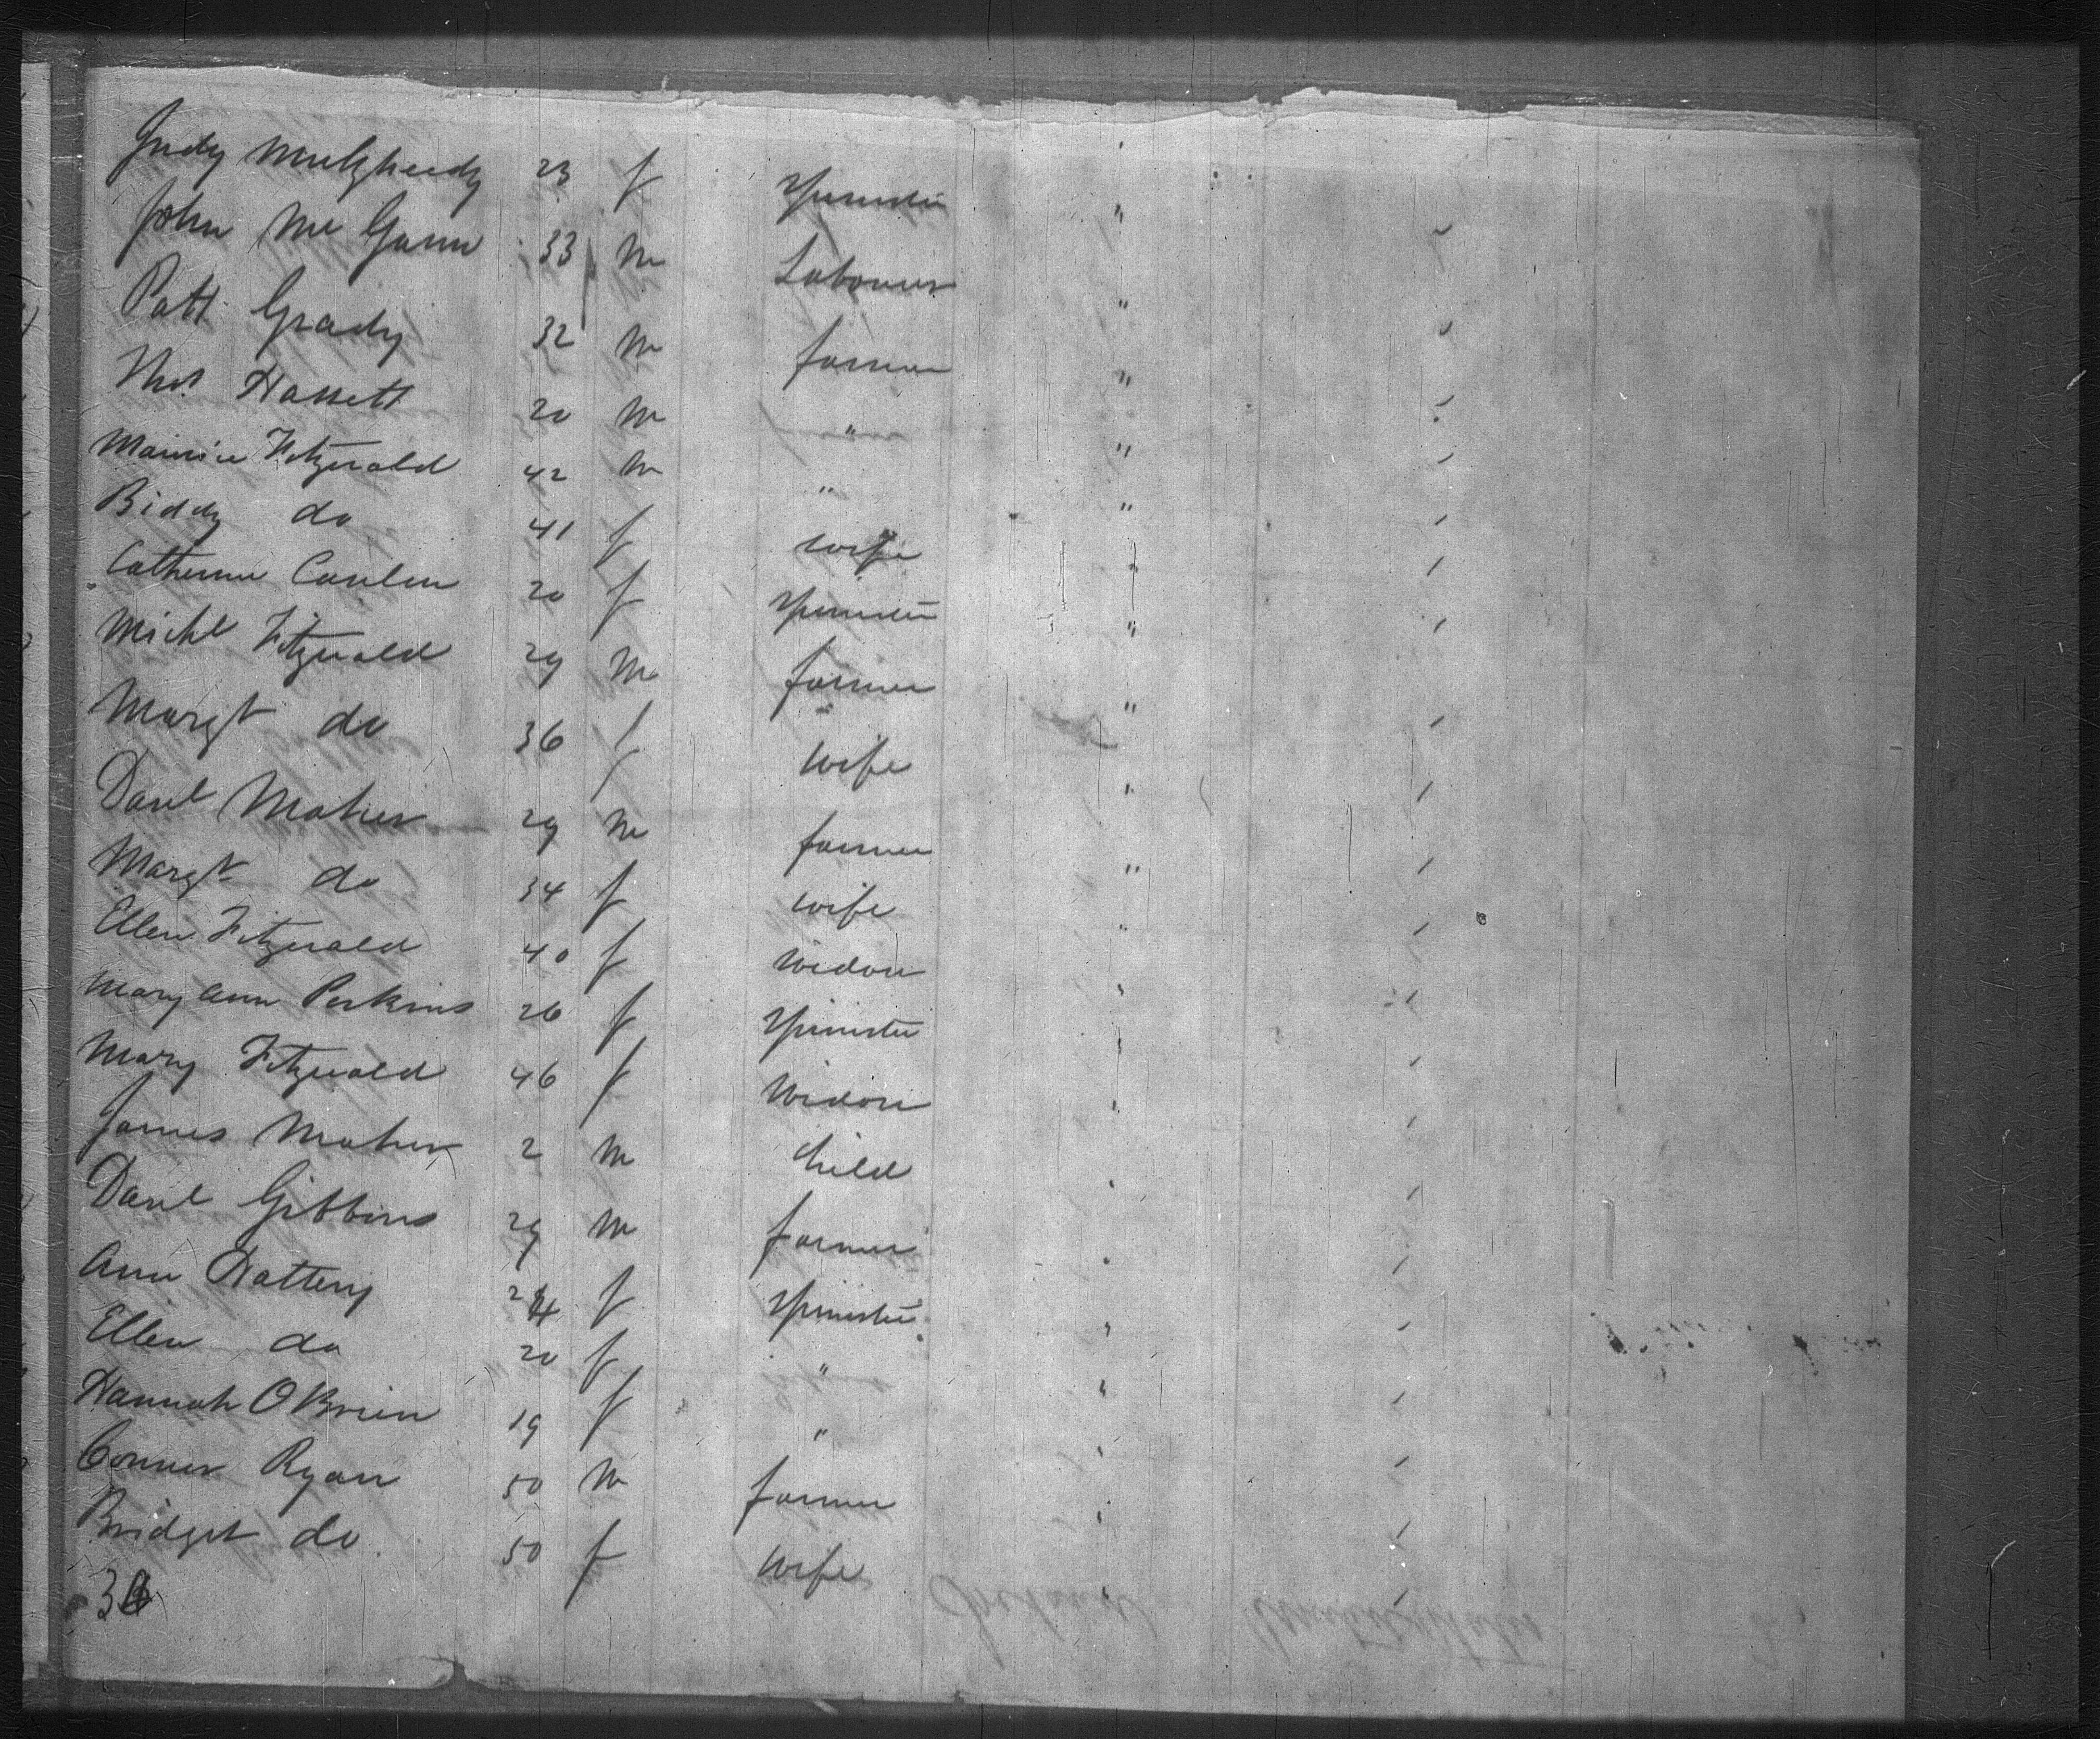 Judy Mulzheedy 23 f Spinster
John McGann 33 M Labourer "
Patt Grady 32 M farmer "
Thos Hassett 20 M " "
Maurice Fitzgerald 42 M " "
Biddy do 41 f wife "
Catherine Conlen 20 f Spinster "
Michl Fitzgerald 29 M farmer "
Margt do 36 f wife "
Danl Maher 29 M farmer "
Margt do 34 f wife "
Ellen Fitzgerald 40 f Widow "
Mary Ann Perkins 26 f Spinster "
Mary Fitzgerald 46 f Widow "
James Maher 2 M Child "
Danl Gibbons 29 M farmer "
Ann Hattery 24 f Spinster "
Ellen do 20 f " "
Hannah OBrien 19 f " "
Connor Ryan 50 M farmer "
Bridget do 50 f wife "